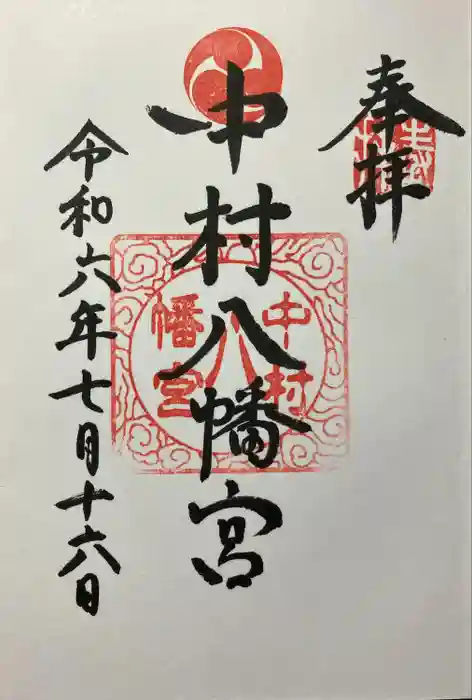 奉拝
中村八幡宮
令和六年七月十六日
中村
八
幡宮